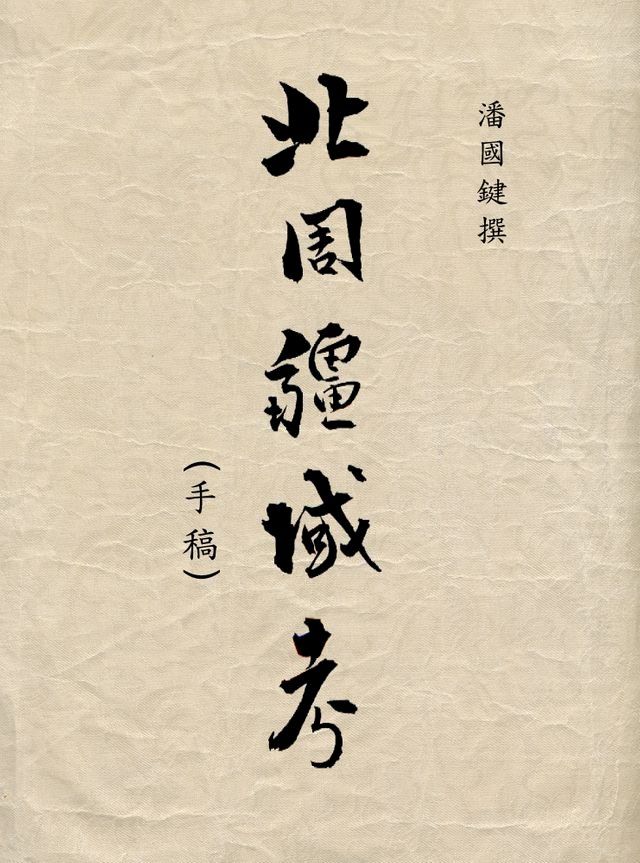 潘國鍵撰
北周疆域考
（手稿）